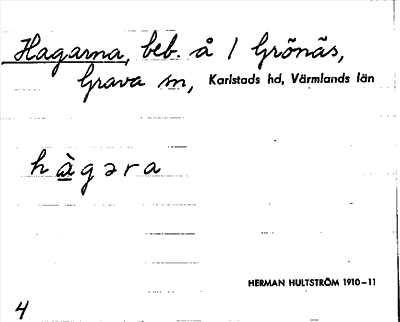 Hagarna, beb. å 1 Grönäs,
Grava sn, Karlstads hd, Värmlands län
hàgəra
HERMAN HULTSTRÖM 1910-11
4